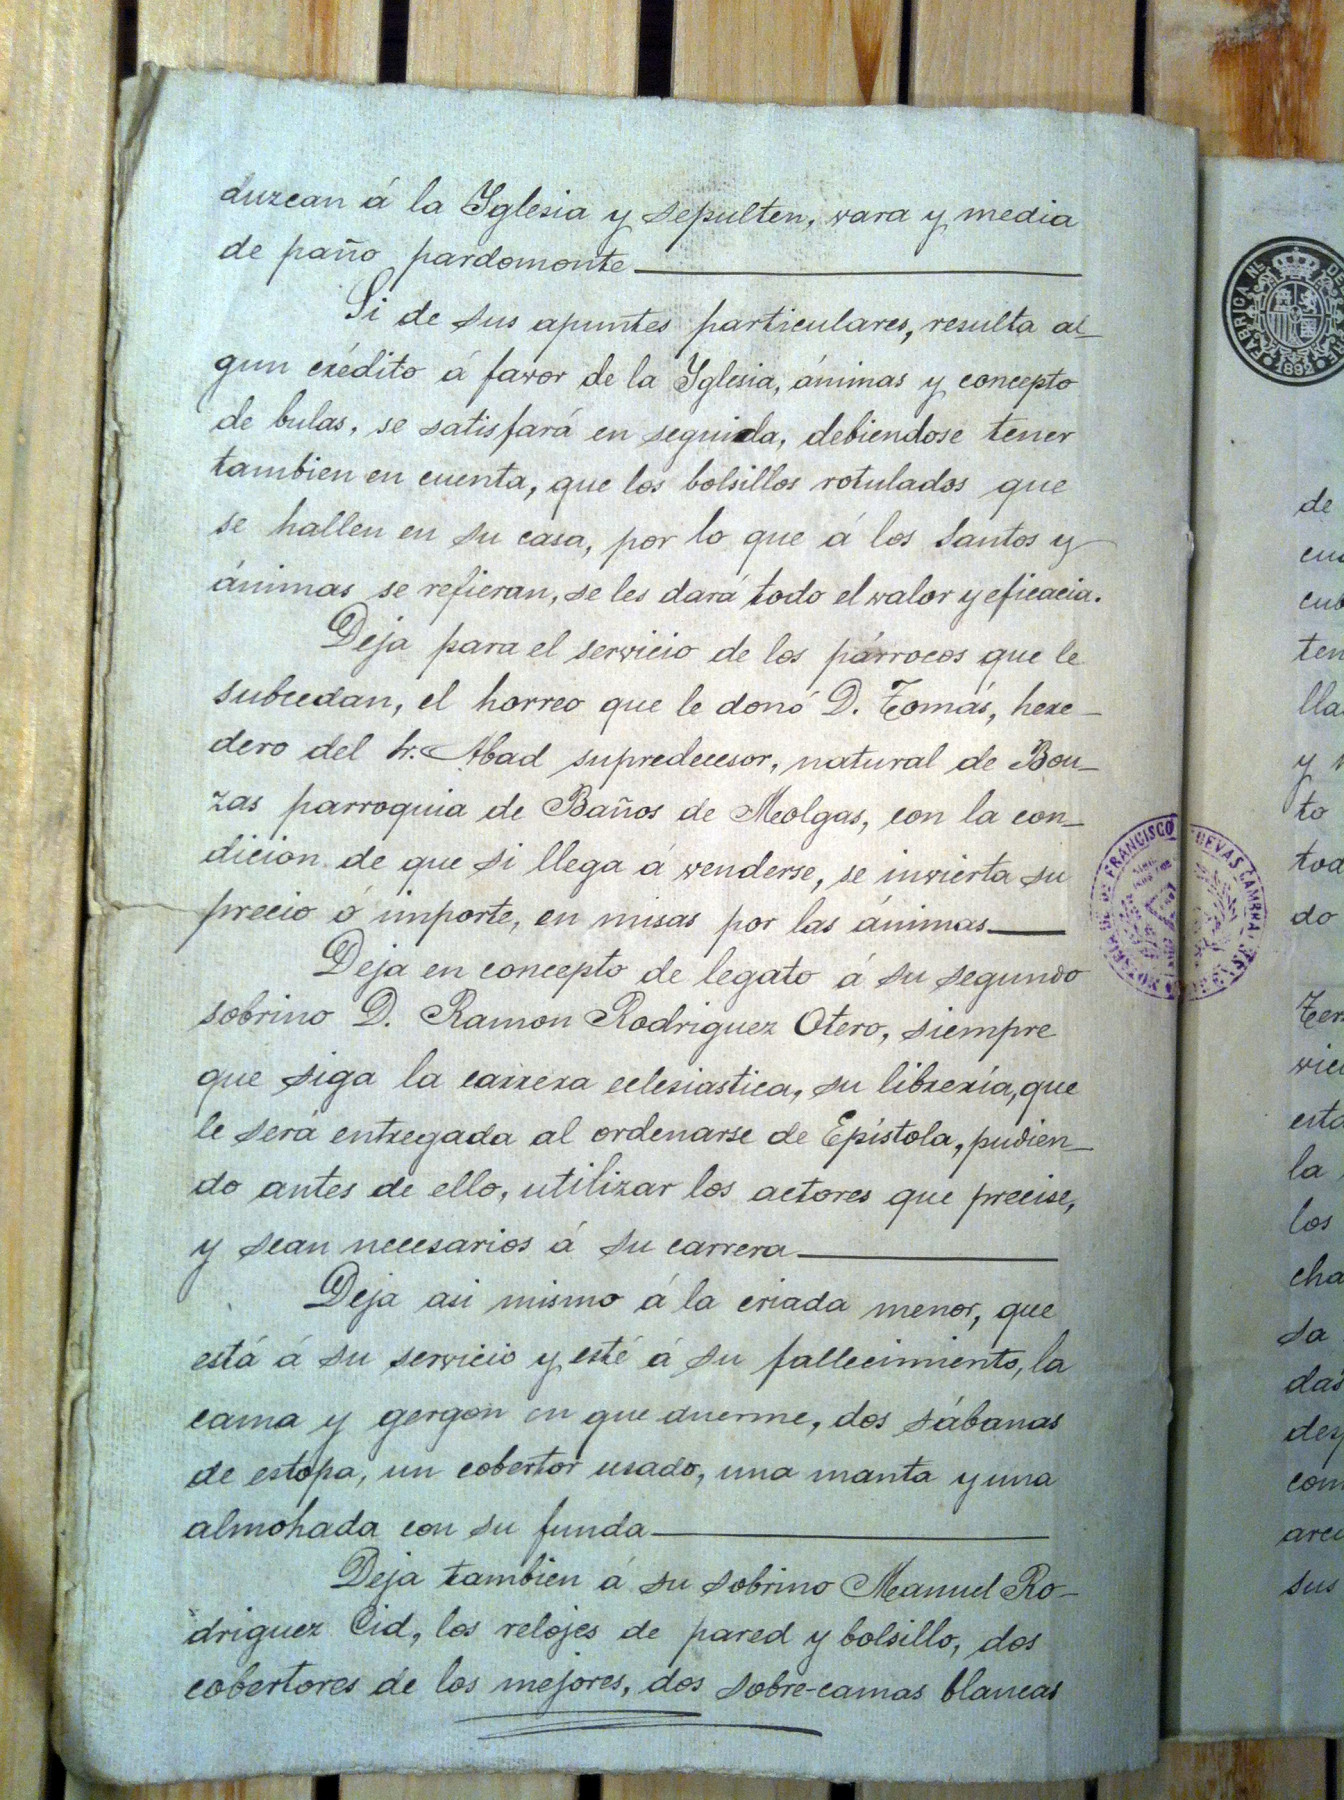 duzcan á la Yglesia y sepulten, vara y media
de paño pardomonte
Si de sus apuntes particulares, resulta al-
gun crédito á favor de la Yglesia, ánimas y concepto
de bulas, se satisfará en seguida, debiendose tener
tambien en cuenta, que los bolsillos rotulados que
se hallen en su casa, por lo que á los Santos y
ánimas se refieran, se les dará todo el valor y eficacia.
Deja para el servicio de los párrocos que le
subcedan, el horreo que le donó D. Tomás, here-
dero del Sr. Abad supredecesor, natural de Bou-
zas parroquia de Baños de Molgas, con la con-
dicion de que si llega á venderse, se invierta su
precio ó importe, en misas por las ánimas
Deja en concepto de legato á su segundo
sobrino D. Ramon Rodriguez Otero, siempre
que siga la carrera eclesiastica, su librería, que
le será entregada al ordenarse de Epístola, pudien-
do antes de ello, utilizar los actores que precise,
y sean necesarios á su carrera
Deja asi mismo á la criada menor, que
está á su servicio y esté á su fallecimiento, la
cama y gergon en que duerme, dos sábanas
de estopa, un cobertor usado, una manta y una
almohada con su funda
Deja tambien á su sobrino Manuel Ro-
driguez Cid, los relojes de pared y bolsillo, dos
cobertores de los mejores, dos sobre-camas blancas
FABRICA NL. DE
1892
DE FRANCISCO CUEVAS
de
ten
lla
y
to
tod
do
la
los
cha
sa
das
com
sus